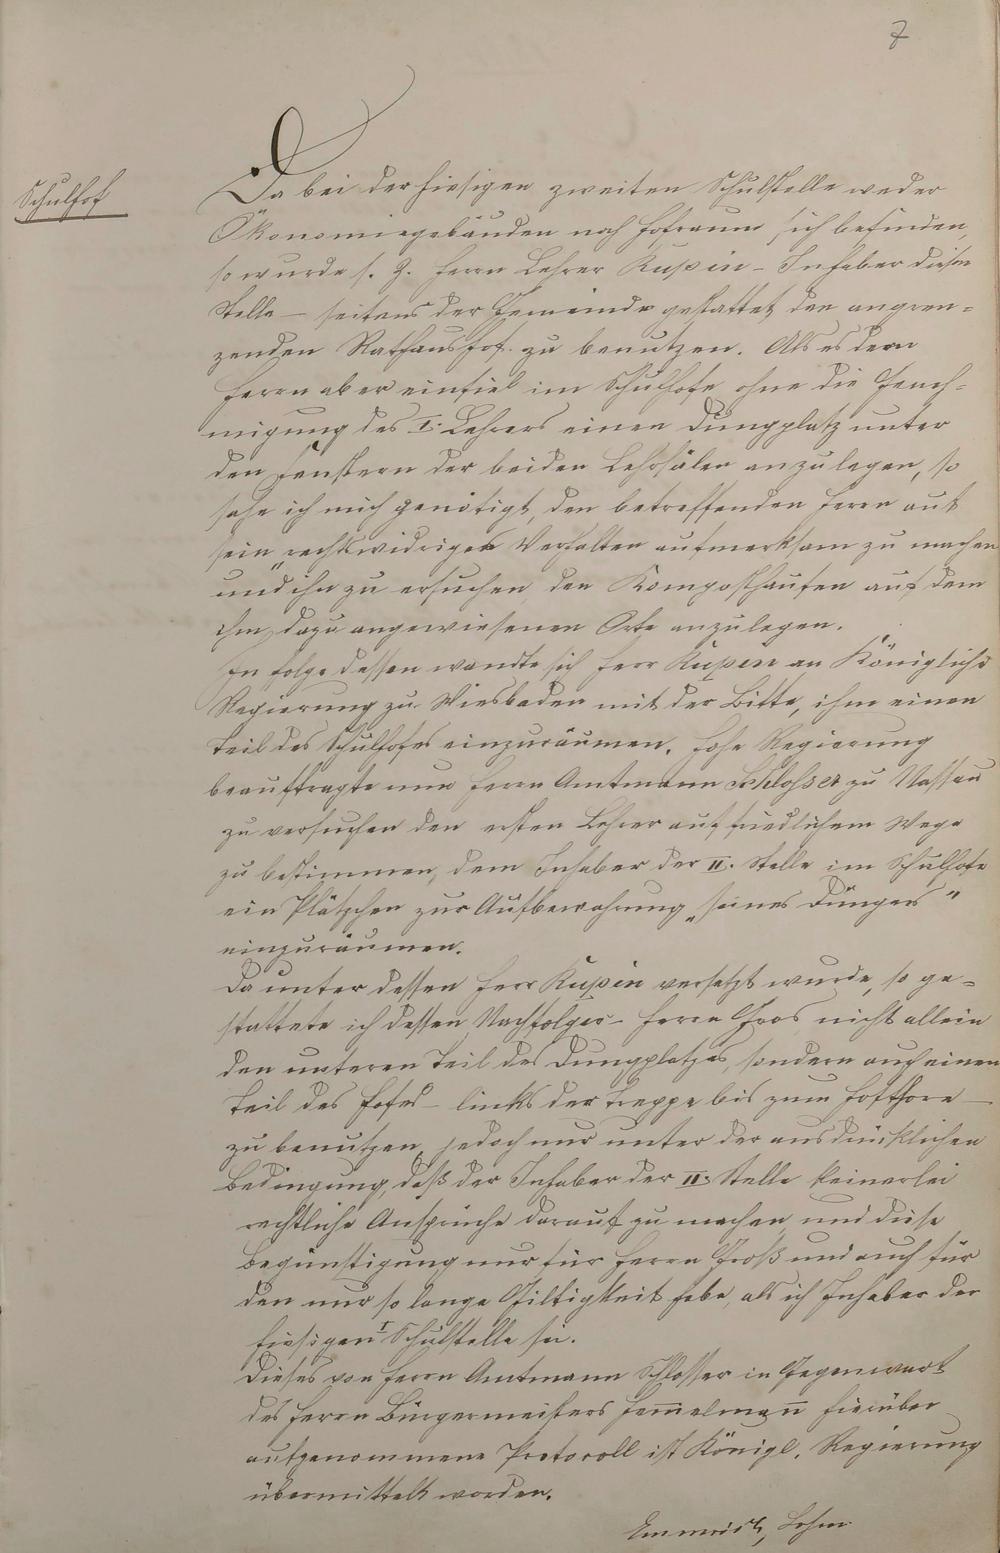 7
Schulhof
Da bei der hiesigen zweiten Schulstelle weder
Ökonomiegebäuden noch Hofraum sich befinden,
so wurde s. Z. Herrn Lehrer Kupin – Inhaber dieser
Stelle – seitens der Gemeinde gestattet den angren-
zenden Rathaushof zu benutzen. Als es dem
Herrn aber einfiel im Schulhofe ohne die Geneh-
migung des I. Lehrers einen Dungplatz unter
den Fenstern der beiden Lehrsälen anzulegen, so
sahe ich mich genötigt, den betreffenden Herrn auf
sein rechtswidriges Verhalten aufmerksam zu machen
und ihn zu ersuchen, den Komposthaufen auf dem
ihm dazu angewiesenen Orte anzulegen.
In folge dessen wandte sich Herr Kupin an Königliche
Regierung zu Wiesbaden mit der Bitte, ihm einen
Teil des Schulhofes einzuräumen. Hohe Regierung
beauftragte nun Herrn Amtmann Schlosser zu Nassau
zu versuchen den ersten Lehrer auf friedlichem Wege
zu bestimmen, dem Inhaber der II. Stelle im Schulhofe
ein Plätzchen zur Aufbewahrung „seines Düngers"
einzuräumen.
Da unter dessen Herr Kupin versetzt wurde, so ge-
stattete ich dessen Nachfolger – Herrn Groos nicht allein
den unteren Teil des Dungplatzes, sondern auch einen
Teil des Hofes – links der Treppe bis zum Hofthore –
zu benutzen, jedoch nur unter der ausdrücklichen
Bedingung, daß der Inhaber der II. Stelle keinerlei
rechtliche Ansprüche darauf zu machen und diese
Begünstigung nur für Herrn Groß und auch für
den nur so lange Giltigkeit habe, als ich Inhaber der
hiesigen I Schulstelle sei.
Dieses von Herrn Amtmann Schlosser in Gegenwart
des Herrn Bürgermeisters Hem̅elman̅ hierüber
aufgenommene Protocoll ist Königl. Regierung
übermittelt worden.
Emmerich, Lehrer